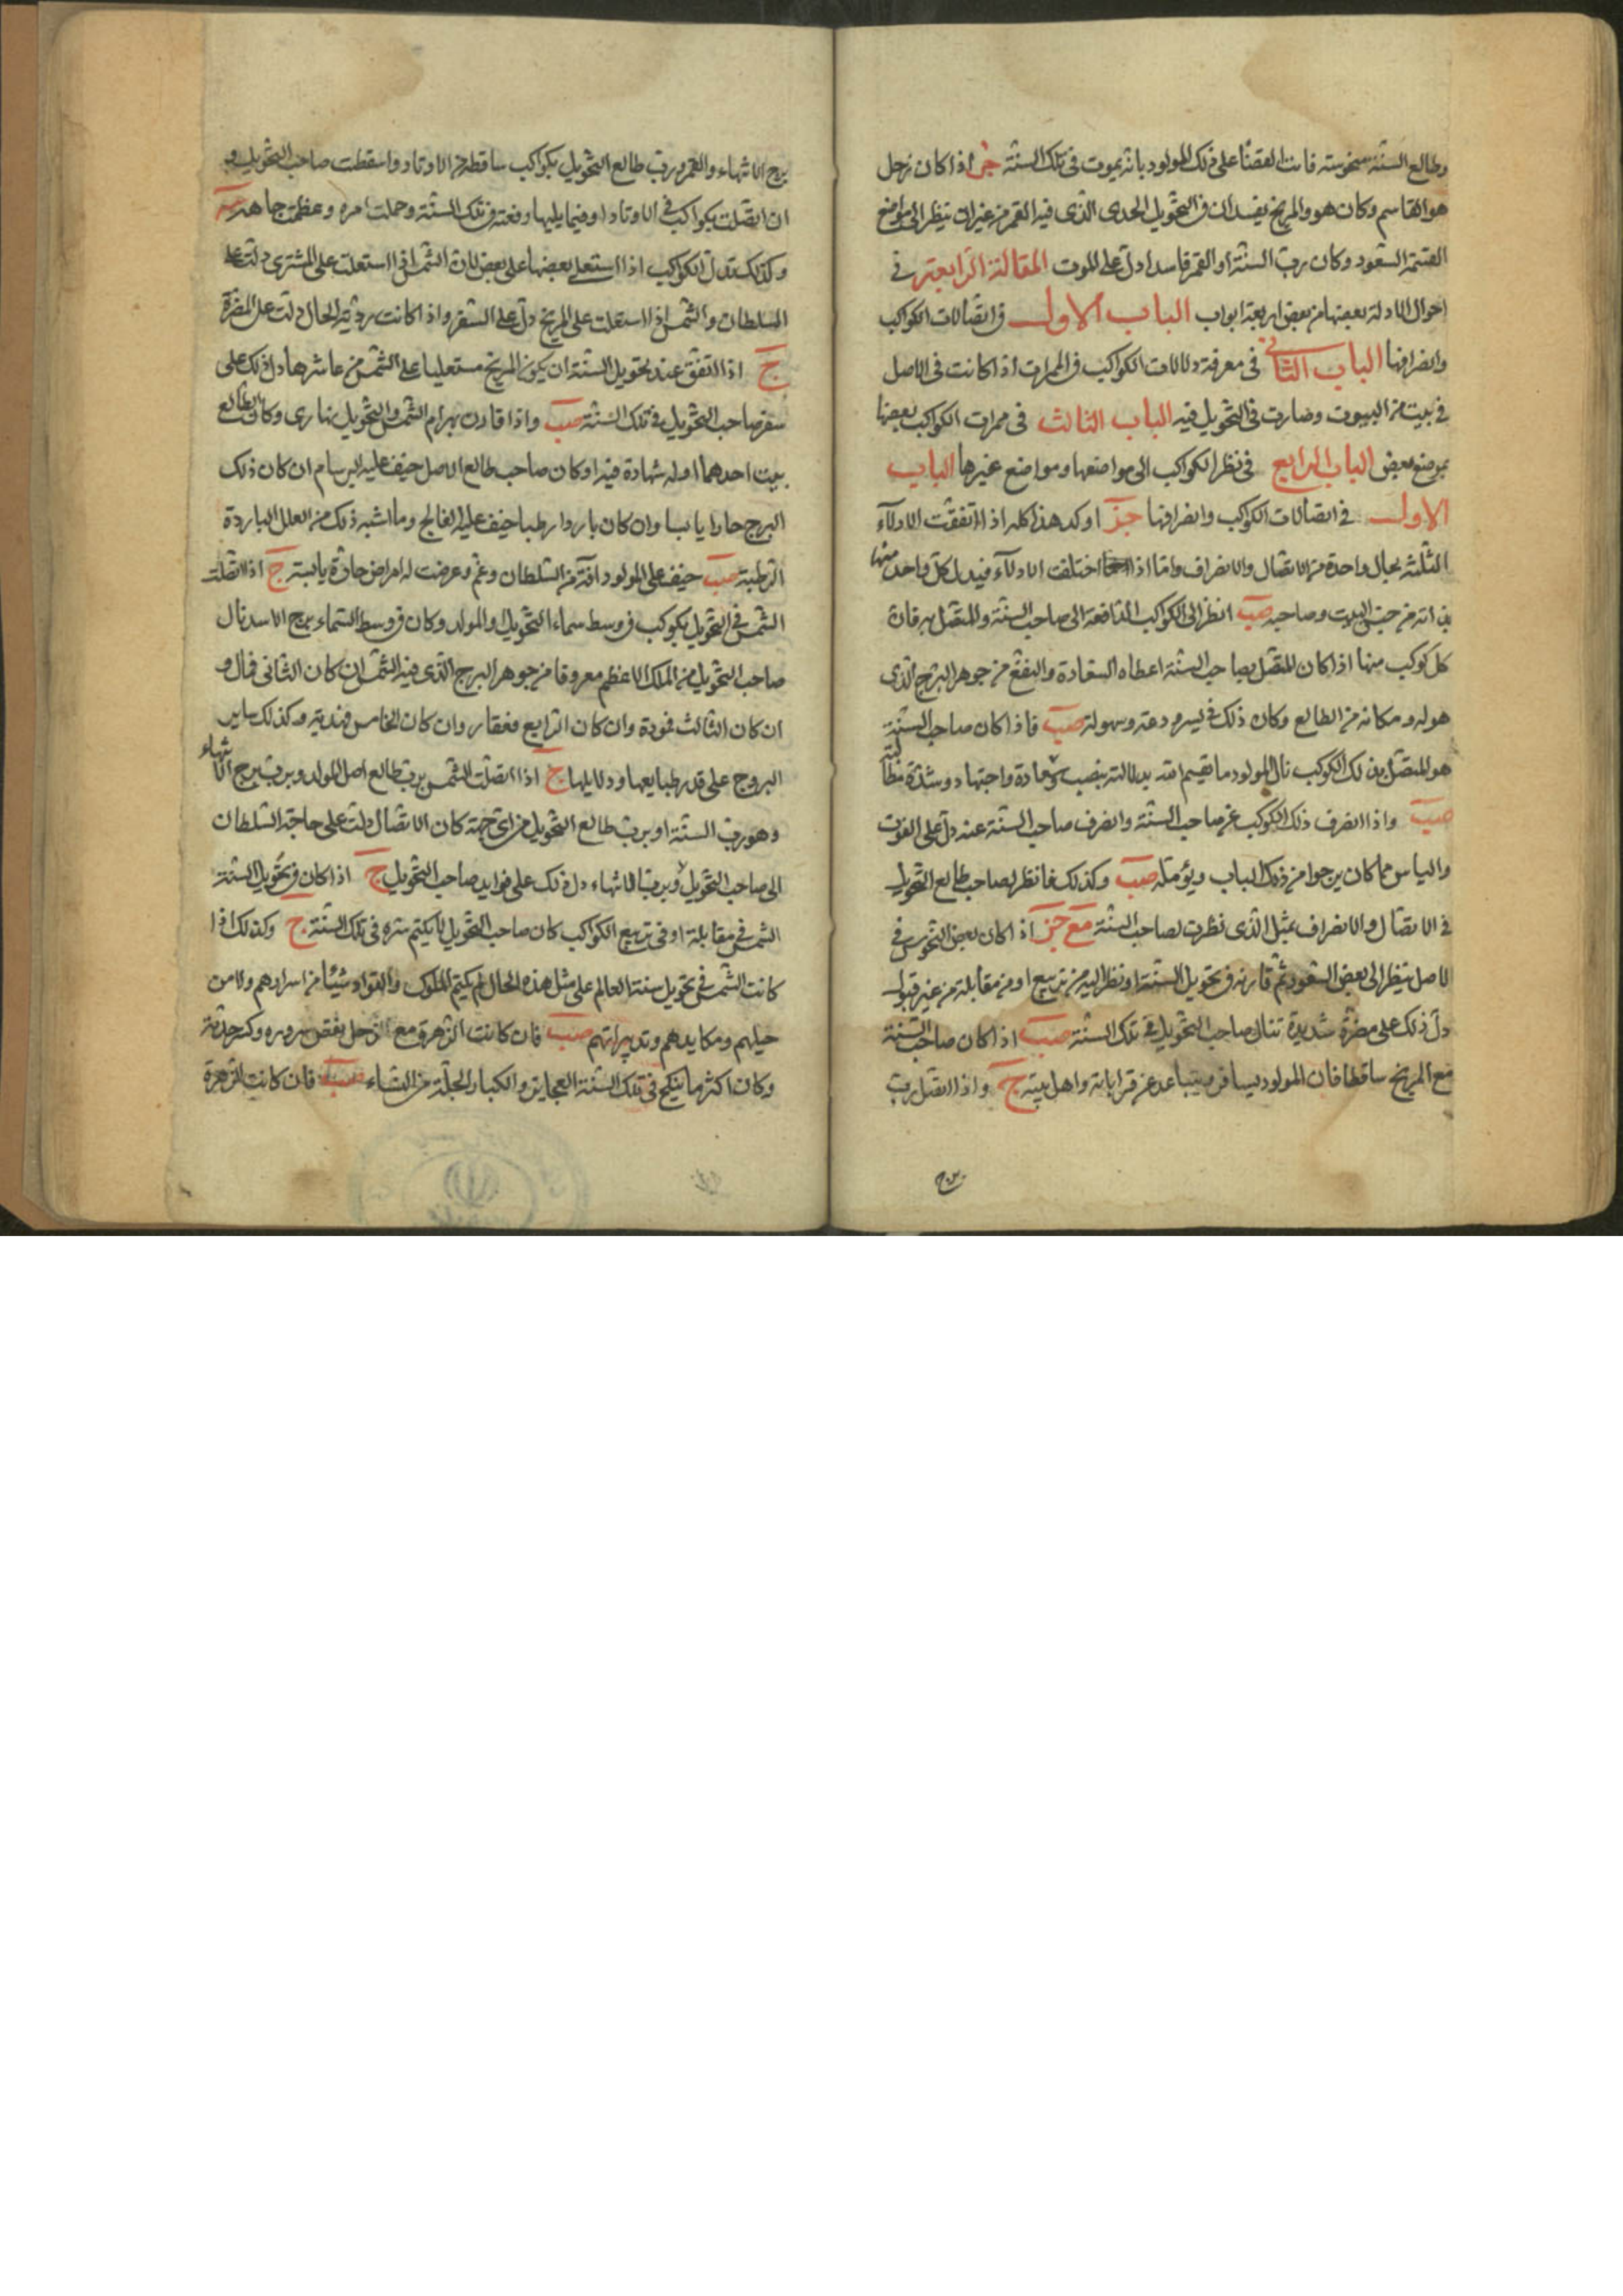 وطالع السنة منحوسة فانت القضا على ذلك المولود بانه يموت فى تلك السنة اذا كان زحل
هو القاسم وكان هو والمريخ يفسدان فى التحويل الحدى الذى فيه القمر من غير ان ينظر الى مواضع
القسمة السعود وكان رب السنة او القمر فاسدا دل على الموت المقالة الرابعة فى
احوال الادلة بعضها من بعض اربعة ابواب الباب الاول فى اتصالات الكواكب
وانصرافها الباب الثانى فى معرفة دلالات الكواكب فى الممرات اذا كانت فى الاصل
فى بيت من البيوت وصارت فى التحويل فيه الباب الثالث فى ممرات الكواكب بعضها
بموضع بعض الباب الرابع فى نظر الكواكب الى مواضعها ومواضع غيرها الباب
الاول فى اتصالات الكواكب وانصرافها اوكد هذا كله اذا اتفقت الادلاء
الثلثة بحال واحدة من الاتصال والانصراف واما اذا اختلفت الادلاء فيدل كل واحد منها
بذاته من جنس البيت وصاحبه صب انظر الى الكواكب الدافعة الى صاحب السنة والمتصل به فان
كل كوكب منها اذا كان المتصل بصاحب السنة اعطاه السعادة والنفع من جوهر البرج الذى
هو له ومكانه من الطالع وكان ذلك فى يسر ودعة وسهولة صب فاذا كان صاحب السنة
هو المتصل بذلك الكوكب نال المولود ما يقسم الله بدلالته بنصب واجتهاد وشدة مطالبة
صب واذا انصرف ذلك الكوكب عن صاحب السنة وانصرف صاحب السنة عنه دل على الفوت
والياس مما كان يرجوا من ذلك الباب ويؤمله صب وكذلك فانظر لصاحب طالع التحويل
فى الاتصال والانصراف بمثل الذى نظرت لصاحب السنة مع اذا كان بعض النحوس فى
الاصل ينظر الى بعض السعود ثم قارنه فى تحويل السنة او نظر اليه من تربيع او من مقابلة من غير قبول
دل ذلك على مضرة شديدة تنال صاحب التحويل فى تلك السنة صب اذا كان صاحب السنة
مع المريخ ساقطا فان المولود يسافر ويتباعد عن قراباته واهل بيته ج واذا اتصل رب
برج الانتهاء والقمر ورب طالع التحويل بكواكب ساقطة من الاوتاد واسقطت صاحب التحويل و
ان اتصلت بكواكب فى الاوتاد او فيما يليها رفعته فى تلك السنة وحملت امره وعظمت جاهه
وكذلك تدل الكواكب اذا استعلى بعضها على بعض لان الشمس اذا استعلت على المشترى دلت على
السلطان والشمس اذا استعلت على المريخ دل على السفر واذا كانت ردية الحال دلت على المضرة
ج اذا اتفق عند تحويل السنة ان يكون المريخ مستعليا على الشمس من عاشرها دل ذلك على
سفر صاحب التحويل فى تلك السنة صب واذا قارن بهرام الشمس والتحويل نهارى وكان الطالع
بيت احدهما او له شهادة فيه او كان صاحب طالع الاصل خيف عليه البرسام ان كان ذلك
البرج حارا يابسا وان كان باردا رطبا خيف عليه الفالج وما اشبه ذلك من العلل الباردة
الرطبة صب خيف على المولود افة من السلطان وغم وعرضت له امراض حارة يابسة ج اذا اتصلت
الشمس فى التحويل بكوكب فى وسط سماء التحويل والمولد وكان فى وسط السماء برج الاسد نال
صاحب التحويل من الملك الاعظم معروفا من جوهر البرج الذى فيه الشمس ان كان الثانى فمال و
ان كان الثالث فمودة وان كان الرابع فعقار وان كان الخامس فهدية وكذلك ساير
البروج على قدر طبايعها ودلايلها ج اذا اتصلت الشمس برب طالع اصل المولد وبرب برج الانتهاء
وهو رب السنة او برب طالع التحويل من اى جهة كان الاتصال دلت على حاجة السلطان
الى صاحب التحويل وبرب الانتهاء دل ذلك على فوايد صاحب التحويل ج اذا كان فى تحويل السنة
الشمس فى مقابلة او فى تربيع الكواكب كان صاحب التحويل لا يكتم سره فى تلك السنة ج وكذلك اذا
كانت الشمس فى تحويل سنة العالم على مثل هذه الحال لم يكتم الملوك والقواد شيئا من اسرارهم ولا من
حيلهم ومكايدهم وتدبيراتهم صب فان كانت الزهرة مع زحل نقص سروره وكثر حزنه
وكان اكثر ما ينكح فى تلك السنة العجايز والكبار الجلة من النساء صب فان كانت الزهرة